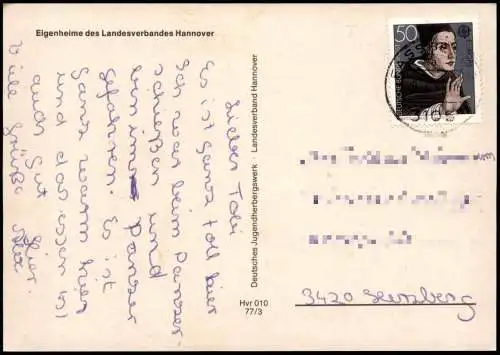 Eigenheime des Landesverbandes Hannover
Lieber Tobi
Es ist ganz toll hier
Ich war beim Panzer-
schießen und
bin im Panzer
gefahren. Es ist
ganz warm hier
und das essen ist
auch gut hier.
Viele Grüße
Deutsches Jugendherbergswerk · Landesverband Hannover
Hvr 010
77/3
50
DEUTSCHE BUNDESPOST
3420